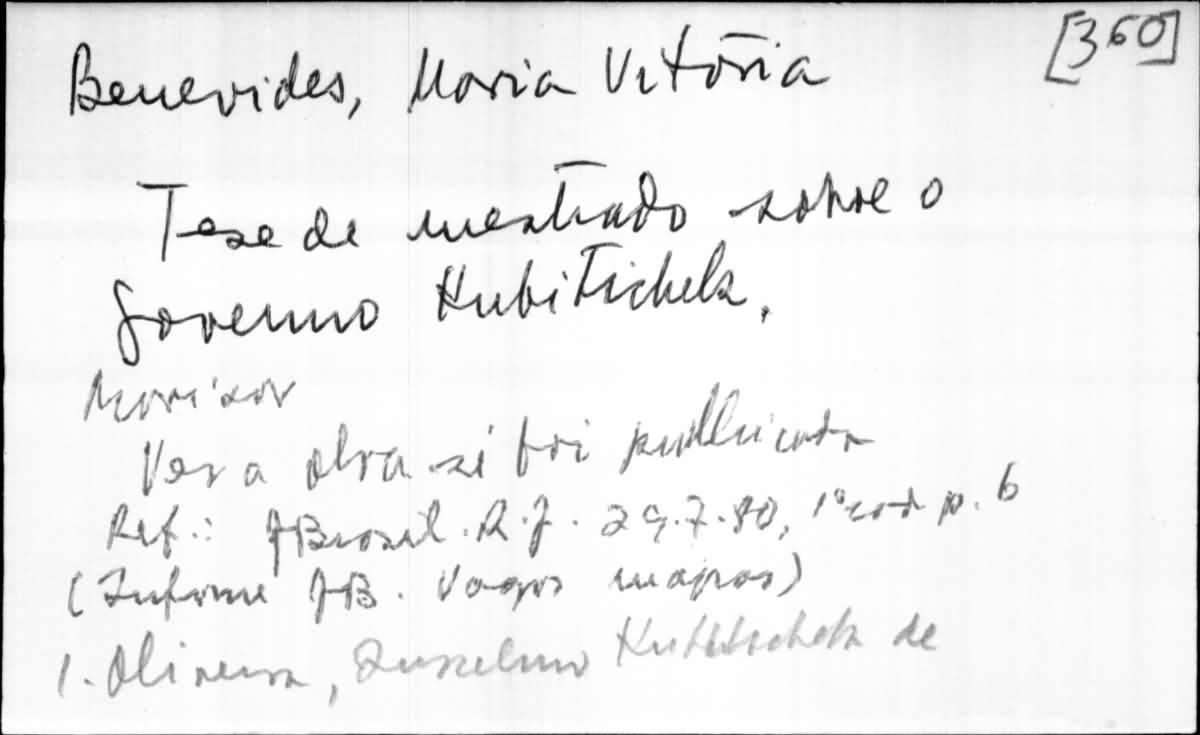 [360]
Benevides, Maria Vitória
Tese de mestrado sobre o
Governo Kubitschek.
Ver a obra se foi publicada
Ref.: JBrasil. R.J. 29.7.80, 1º cad p. 6
(Informe JB. Vagas magras)
1. Oliveira, Juscelino Kubitschek de